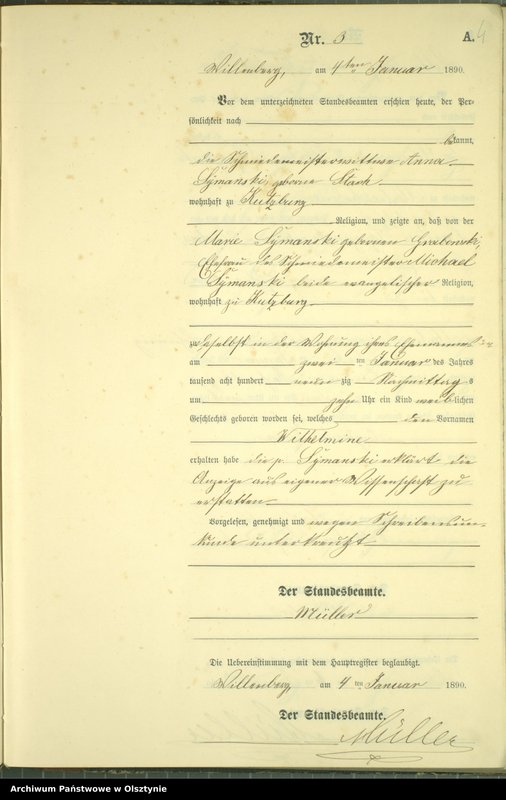 Nr. 3
A. 4
Willenberg, am 4ten Januar 1890.
Vor dem unterzeichneten Standesbeamten erschien heute, der Per-
sönlichkeit nach
bekannt,
die Schmiedemeisterwittwe Anna
Symanski, geborene Stach
wohnhaft zu Kutzburg
Religion, und zeigte an, daß von der
Marie Symanski geborenen Grabowski,
Ehefrau des Schmiedemeister Michael
Symanski beide evangelischer Religion,
wohnhaft zu Kutzburg
zu daselbst in der Wohnung ihres Ehemannes
am zwei ten Januar des Jahres
tausend acht hundert neun zig Nachmittags
um zehn Uhr ein Kind weiblichen
Geschlechts geboren worden sei, welches den Vornamen
Wilhelmine
erhalten habe die p. Symanski erklärt die
Anzeige aus eigener Wissenschaft zu
erstatten
Vorgelesen, genehmigt und wegen Schreibensun-
kunde unterkreuzt
Der Standesbeamte.
Müller
Die Uebereinstimmung mit dem Hauptregister beglaubigt.
Willenberg, am 4 ten Januar 1890.
Der Standesbeamte.
Müller
Archiwum Państwowe w Olsztynie